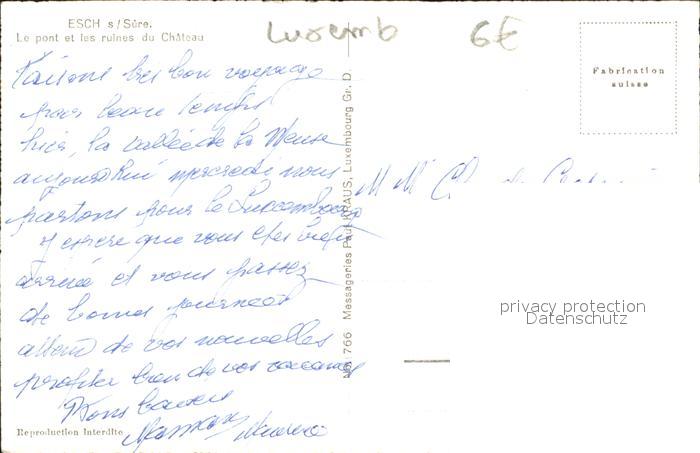 ESCH s/Sûre.
Le pont et les ruines du Château
Luxemb
6€
Fabrication
suisse
Faisons très bon voyage
par beau temps
hier, la vallée de la Meuse
aujourd'hui mercredi nous
partons pour le Luxembourg
J'espère que vous êtes bien
arrivé et vous passez
de bonnes journées
attend de vos nouvelles
profiter bien de vos vacances
Bons baisers
Maman
Reproduction Interdite
No. 766 Messageries Paul KRAUS, Luxembourg Gr. D.
M M
privacy protection
Datenschutz